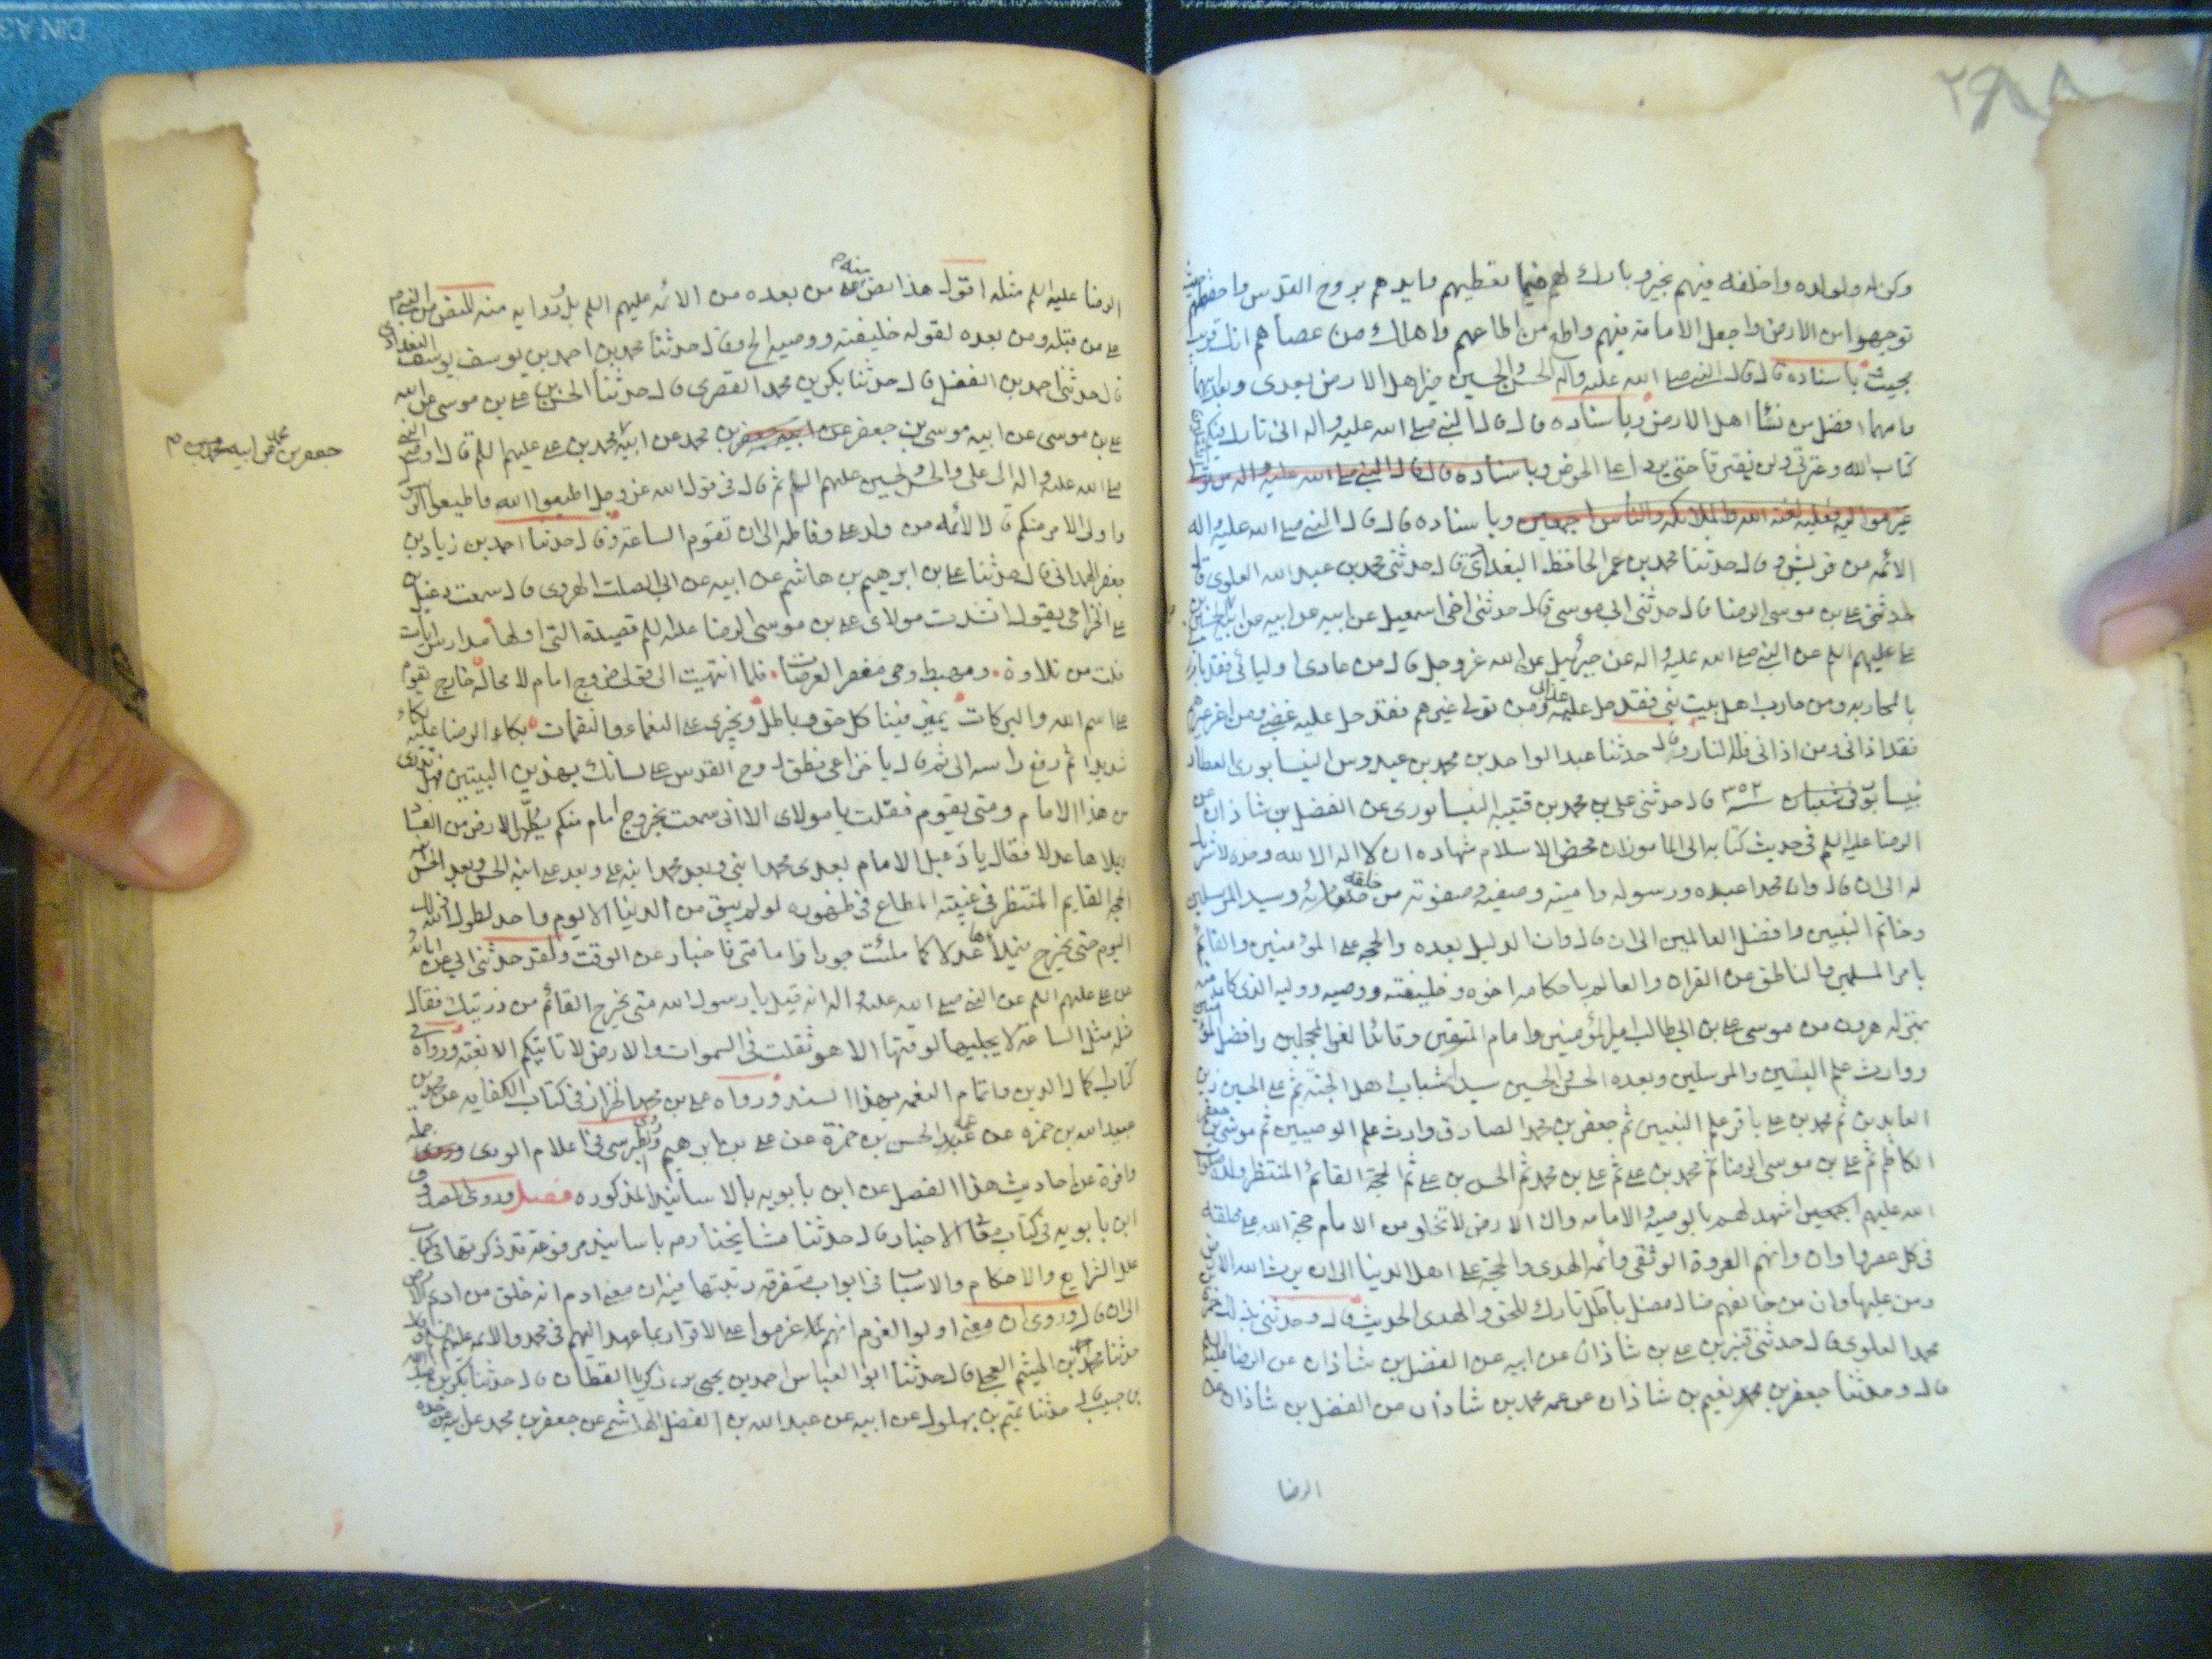 وكن له ولولده واخلفه فيهم بخير وبارك لهم فيما تعطيهم وايدهم بروح القدس واحفظهم حيث
توجهوا من الارض واجعل الامامة فيهم واطع من اطاعهم واهلك من عصاهم انك قريب
مجيب وباسناده قال قال النبي صلى الله عليه وآله الحسن والحسين خير اهل الارض بعدي وبعد ابيهما
وامهما افضل من نساء اهل الارض وباسناده قال قال النبي صلى الله عليه واله اني تارك فيكم الثقلين
كتاب الله وعترتي ولن يفترقا حتى يردا على الحوض وباسناده قال قال النبي صلى الله عليه واله من تولى
غير مواليه فعليه لعنة الله والملائكة والناس اجمعين وباسناده قال قال النبي صلى الله عليه واله
الائمه من قريش وقال حدثنا محمد بن عمر الحافظ البغدادي قال حدثني محمد بن عبد الله العلوي قال
حدثني علي بن موسى الرضا قال حدثني ابي موسى قال حدثني اخي اسمعيل عن ابيه عن ابيه عن ابيه الحسين بن
علي عليهم السلم عن النبي صلى الله عليه واله عن جبرئيل عن الله عز وجل قال من عادى اوليائي فقد بارزني
بالمحاربه ومن حارب اهل بيت نبي فقد حل عليه عذابي ومن تولى غيرهم فقد حل عليه غضبي ومن اعز غيرهم
فقد اذاني ومن اذاني فله النار وقال حدثنا عبد الواحد بن محمد بن عبدوس النيسابوري العطار
بنيسابور في شعبان سنة ٣٥٢ قال حدثني علي بن محمد بن قتيبه النيسابوري عن الفضل بن شاذان عن
الرضا عليه السلم في حديث كتابه الى المامون ان محض الاسلام شهاده ان لا اله الا الله وحده لا شريك
له الى ان قال وان محمدا عبده ورسوله وامينه وصفيه وصفوته من خلقه وسيد المرسلين
وخاتم النبيين وافضل العالمين الى ان قال وان الدليل بعده والحجه على المؤمنين والقائم
بامر المسلمين والناطق عن القران والعالم باحكامه اخوه وخليفته ووصيه ووليه الذي كان منه
بمنزله هرون من موسى علي بن ابي طالب امير المؤمنين وامام المتقين وقائد الغر المحجلين وافضل الوصيين
ووارث علم النبيين والمرسلين وبعده الحسن والحسين سيدا شباب اهل الجنة ثم علي بن الحسين زين
العابدين ثم محمد بن علي باقر علم النبيين ثم جعفر بن محمد الصادق وارث علم الوصيين ثم موسى بن جعفر
الكاظم ثم علي بن موسى الرضا ثم محمد بن علي ثم علي بن محمد ثم الحسن بن علي ثم الحجة القائم المنتظر صلوات
الله عليهم اجمعين اشهد لهم بالوصيه والامامه وان الارض لا تخلو من الامام حجة الله على خلقه
في كل عصر واوان وانهم العروة الوثقى وائمه الهدى والحجة على اهل الدنيا الى ان يرث الله الارض
ومن عليها وان من خالفهم ضال مضل باطل تارك للحق والهدى الحديث قال وحدثني بذلك حمزة بن
محمد العلوي قال حدثني قنبر بن علي بن شاذان عن ابيه عن الفضل بن شاذان عن الرضا عليه السلم
قال وحدثنا جعفر بن محمد نعيم بن شاذان عن عمه محمد بن شاذان عن الفضل بن شاذان عن
الرضا
الرضا عليه السلم مثله اقول هذا نص منه على من بعده من الائمه عليهم السلم بل رواية منه للنص من النبي
على من قبله ومن بعده لقوله خليفته ووصيه الخ وقال حدثنا محمد بن احمد بن يوسف البغدادي
قال حدثني احمد بن الفضل قال حدثنا بكر بن محمد القصري قال حدثنا الحسن بن علي بن موسى عن ابيه
علي بن موسى عن ابيه موسى بن جعفر عن ابيه جعفر بن محمد عن ابيه محمد بن علي عليهم السلم قال اوصى النبي
جعفر بن محمد عن ابيه
صلى الله عليه واله الى علي والحسن والحسين عليهم السلم ثم قال في قول الله عز وجل اطيعوا الله واطيعوا الرسول
واولي الامر منكم قال الائمه من ولد علي وفاطمه الى ان تقوم الساعة وقال حدثنا احمد بن زياد بن
جعفر الهمداني قال حدثنا علي بن ابرهيم بن هاشم عن ابيه عن ابي الصلت الهروي قال سمعت دعبل بن
علي الخزاعي يقول انشدت مولاي علي بن موسى الرضا عليه السلم قصيدة التي اولها مدارس ايات
خلت من تلاوة ومهبط وحي مقفر العرصات فلما انتهيت الى قولي خروج امام لا محالة خارج يقوم
على اسم الله والبركات يميز فينا كل حق وباطل ويجزي على النعماء والنقمات بكى الرضا عليه بكاء
شديدا ثم رفع راسه الي ثم قال يا خزاعي نطق روح القدس على لسانك بهذين البيتين فهل تدري
من هذا الامام ومتى يقوم فقلت يا مولاي الا اني سمعت بخروج امام منكم يطهر الارض من الفساد
ويملاها عدلا فقال يا دعبل الامام بعدي محمد ابني وبعد محمد ابنه علي وبعد علي ابنه الحسن وبعد الحسن ابنه
الحجة القايم المنتظر في غيبته المطاع في ظهوره لو لم يبق من الدنيا الا يوم واحد لطول الله ذلك
اليوم حتى يخرج فيملأها عدلا كما ملئت جورا واما متى فاخبار عن الوقت ولقد حدثني ابي عن ابائه
عن علي عليهم السلم عن النبي صلى الله عليه واله انه قيل يا رسول الله متى يخرج القائم من ذريتك فقال
مثله مثل الساعة لا يجليها لوقتها الا هو ثقلت في السموات والارض لا تاتيكم الا بغته ورواه في
كتاب كمال الدين واتمام النعمه بهذا السند ورواه علي بن محمد الخزاز في كتاب الكفايه عن محمد بن
عبد الله بن حمزه عن عمه الحسن بن حمزة عن علي بن ابرهيم وروى الطبرسي في اعلام الورى جملة
وافرة من احاديث هذا الفصل عن ابن بابويه بالاسانيد المذكوره فصل وروى الصدوق
ابن بابويه في كتاب معاني الاخبار قال حدثنا مشايخنا رحم باسانيد مرفوعة قد ذكرتها في كتاب
علل الشرايع والاحكام والاسباب في ابواب متفرقه رتبتها فيه ان معنى ادم انه خلق من اديم الارض
الى ان قال وروى ان معنى اولوا العزم انهم عزموا على الاقرار بما عهد اليهم في محمد والائمه عليهم السلم
حدثنا احمد بن الهيثم العجلي قال حدثنا ابو العباس احمد بن يحيى بن زكريا القطان قال حدثنا بكر بن عبد الله
بن حبيب قال حدثنا تميم بن بهلول عن ابيه عن عبد الله بن الفضل الهاشمي عن جعفر بن محمد عن ابيه عن جده